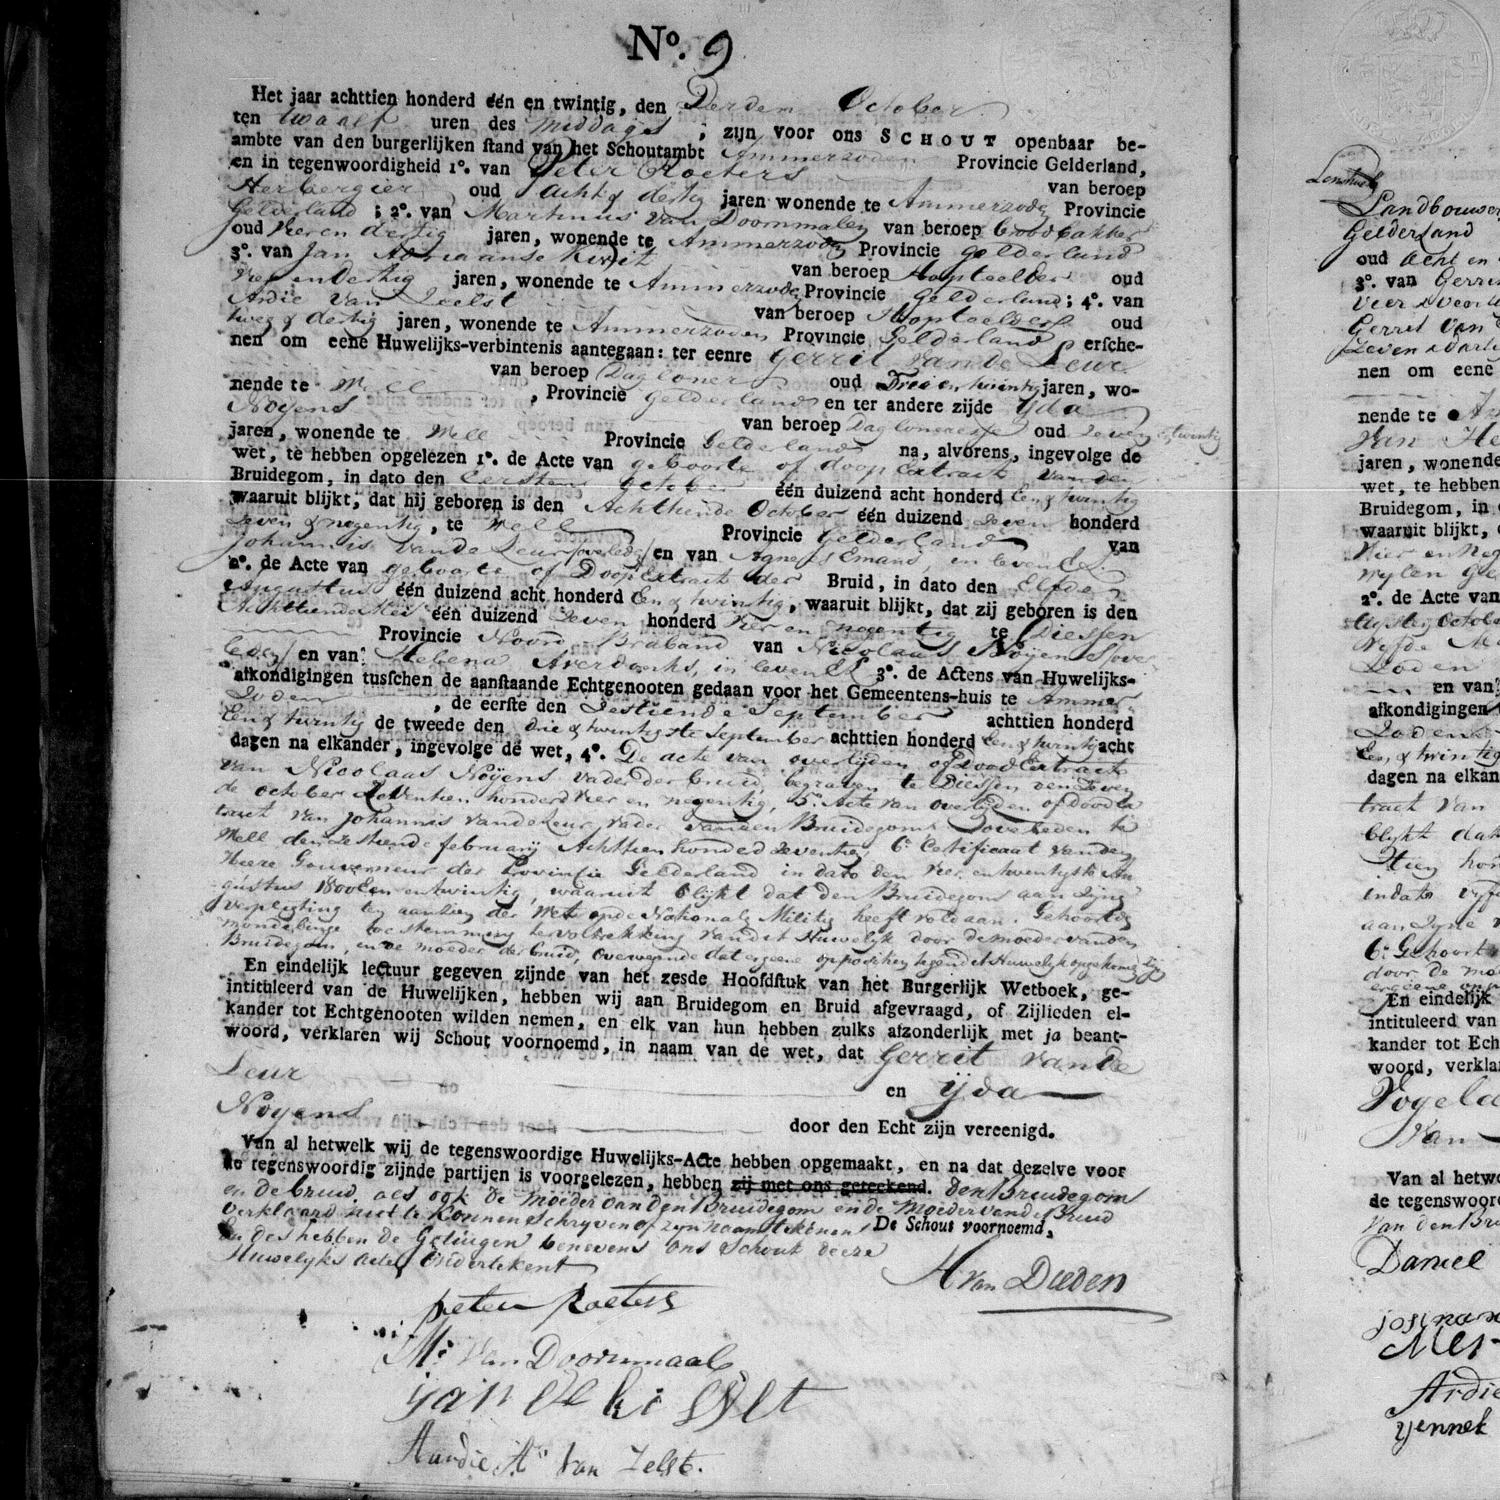 No. 9
Het jaar achttien honderd één en twintig, den Derden October
ten twaalf uren des middags ; zijn voor ons SCHOUT openbaar be-
ambte van den burgerlijken stand van het Schoutambt Ammerzoden Provincie Gelderland,
en in tegenwoordigheid 1º. van Peter Roeters van beroep
Herbergier oud acht & dertig jaren wonende te Ammerzode Provincie
Gelderland ; 2º. van Martinus van Doornmalen van beroep broodbakker
oud vier en dertig jaren, wonende te Ammerzode Provincie gelderland
3º. van Jan Adriaanse van beroep Hopteelder oud
vier en dertig jaren, wonende te Ammerzode Provincie Gelderland ; 4º. van
Ardie van Zelst van beroep Hopteelder oud
twee & dertig jaren, wonende te Ammerzoden Provincie Gelderland ersche-
nen om eene Huwelijks-verbintenis aantegaan: ter eenre Gerrit van de Leur
van beroep Dagloner oud Drie en twintig jaren, wo-
nende te Well , Provincie gelderland en ter andere zijde Yda
Noyens van beroep Dagloneresse oud zeven en twintig
jaren, wonende te Well Provincie Gelderland na, alvorens, ingevolge de
wet, te hebben opgelezen 1º. de Acte van geboorte of doop Extract van den
Bruidegom, in dato den Eersten October één duizend acht honderd Een & twintig
waaruit blijkt, dat hij geboren is den Achttiende October één duizend Zeven honderd
Zeven & negentig, te Well Provincie Gelderland van
Johannis van de Leur (overleden) en van Agnees Emans, en levende
2º. de Acte van geboorte of Doop Extract der Bruid, in dato den Elfden
Augustus één duizend acht honderd Een & twintig, waaruit blijkt, dat zij geboren is den
Achttiende Mei één duizend Zeven honderd Vier en negentig te Diessen
Provincie Noord Braband van Nicolaas Noyens (over-
leden) en van Helena Averdonks, in leven 3º. de Actens van Huwelijks-
afkondigingen tusschen de aanstaande Echtgenooten gedaan voor het Gemeentens-huis te Ammer-
zoden , de eerste den Zestiende September achttien honderd
Een & twintig de tweede den drie & twintigste September achttien honderd Een & twintig acht
dagen na elkander, ingevolge de wet, 4º. De acte van overlijden of Dood Extract
van Nicolaas Noyens vader der bruid, begraven te Diessen den Zeven
de october Zeventien honderd vier en negentig, 5º. Acte van overlijden of Dood Ex
tract van Johannis van de Leur, vader van den Bruidegom, overleden te
Well den Zestiende februarij Achttien honderd Zeventien, 6º Certificaat van den
Heere Gouverneur der Provincie Gelderland in dato den vier en twentigste Au
gustus 1800 Een en twintig, waaruit blijkt dat den Bruidegom aan zyne
verpligting ten aanzien der Wet op de Nationale Militie heeft voldaan. Gehoord de
mondelinge toestemming ter voltrekking van dit Huwelyk door de moeder van den
Bruidegom, en de moeder der bruid, overwegende dat er geene oppositien tegen dit Huwelyk opgekomen zyn
En eindelijk lectuur gegeven zijnde van het zesde Hoofdstuk van het Burgerlijk Wetboek, ge-
intituleerd van de Huwelijken, hebben wij aan Bruidegom en Bruid afgevraagd, of Zijlieden el-
kander tot Echtgenooten wilden nemen, en elk van hun hebben zulks afzonderlijk met ja beant-
woord, verklaren wij Schout voornoemd, in naam van de wet, dat Gerrit van de
Leur en Yda
Noyens door den Echt zijn vereenigd.
Van al hetwelk wij de tegenswoordige Huwelijks-Acte hebben opgemaakt, en na dat dezelve voor
de tegenswoordig zijnde partijen is voorgelezen, hebben zij met ons geteekend. den Bruidegom
en de bruid, als ook de moeder van den Bruidegom en de moeder van de Bruid
verklaard niet te konnen schryven of zyn naam tekenen De Schout voornoemd,
En des hebben de Getuigen benevens ons Schout deeze
Huwelyks acte, Ondertekent
H van Dieden
peter Roeters
M: van Doornmaal
Aardie As van Zelst.
Landbouwer
Gelderland
oud acht en
3º. van Gerri
Gerret van
nen om eene
nende te
jaren, wonende
wet, te hebben
Bruidegom, in
waaruit blijkt,
2º. de Acte van
en van
afkondigingen
Zoden
Een & twintig
dagen na elkan
tract van
blykt dat
6º Gehoort
door de moe
En eindelijk
intituleerd van
kander tot Echt
woord, verklar
Van al hetwe
de tegenswoor
Van den Bru
Daniel
Ardie